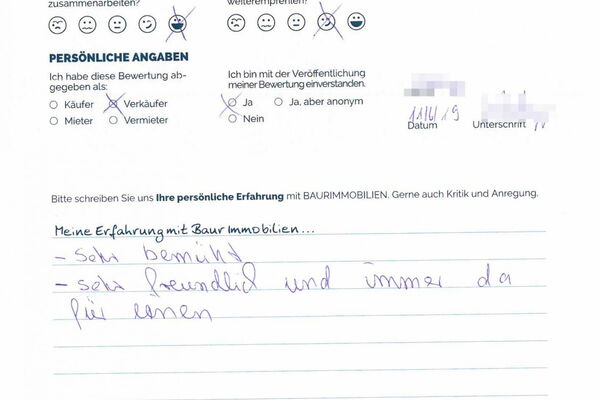 zusammenarbeiten?
weiterempfehlen?
PERSÖNLICHE ANGABEN
Ich habe diese Bewertung ab-
gegeben als:
Käufer Verkäufer
Mieter Vermieter
Ich bin mit der Veröffentlichung
meiner Bewertung einverstanden.
Ja Ja, aber anonym
Nein
11/6/19
Datum Unterschrift
Bitte schreiben Sie uns Ihre persönliche Erfahrung mit BAURIMMOBILIEN. Gerne auch Kritik und Anregung.
Meine Erfahrung mit Baur Immobilien...
- Sehr bemüht
- sehr freundlich und immer da
für einen